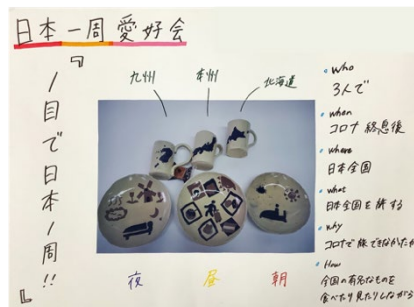 日本一周愛好会
『1目で日本1周!!』
九州
本州
北海道
夜
昼
朝
• who
3人で
• when
コロナ終息後
• where
日本全国
• what
日本全国を旅する
• why
コロナで旅できなかったか
• How
全国の有名なものを
食べたり見たりしながら